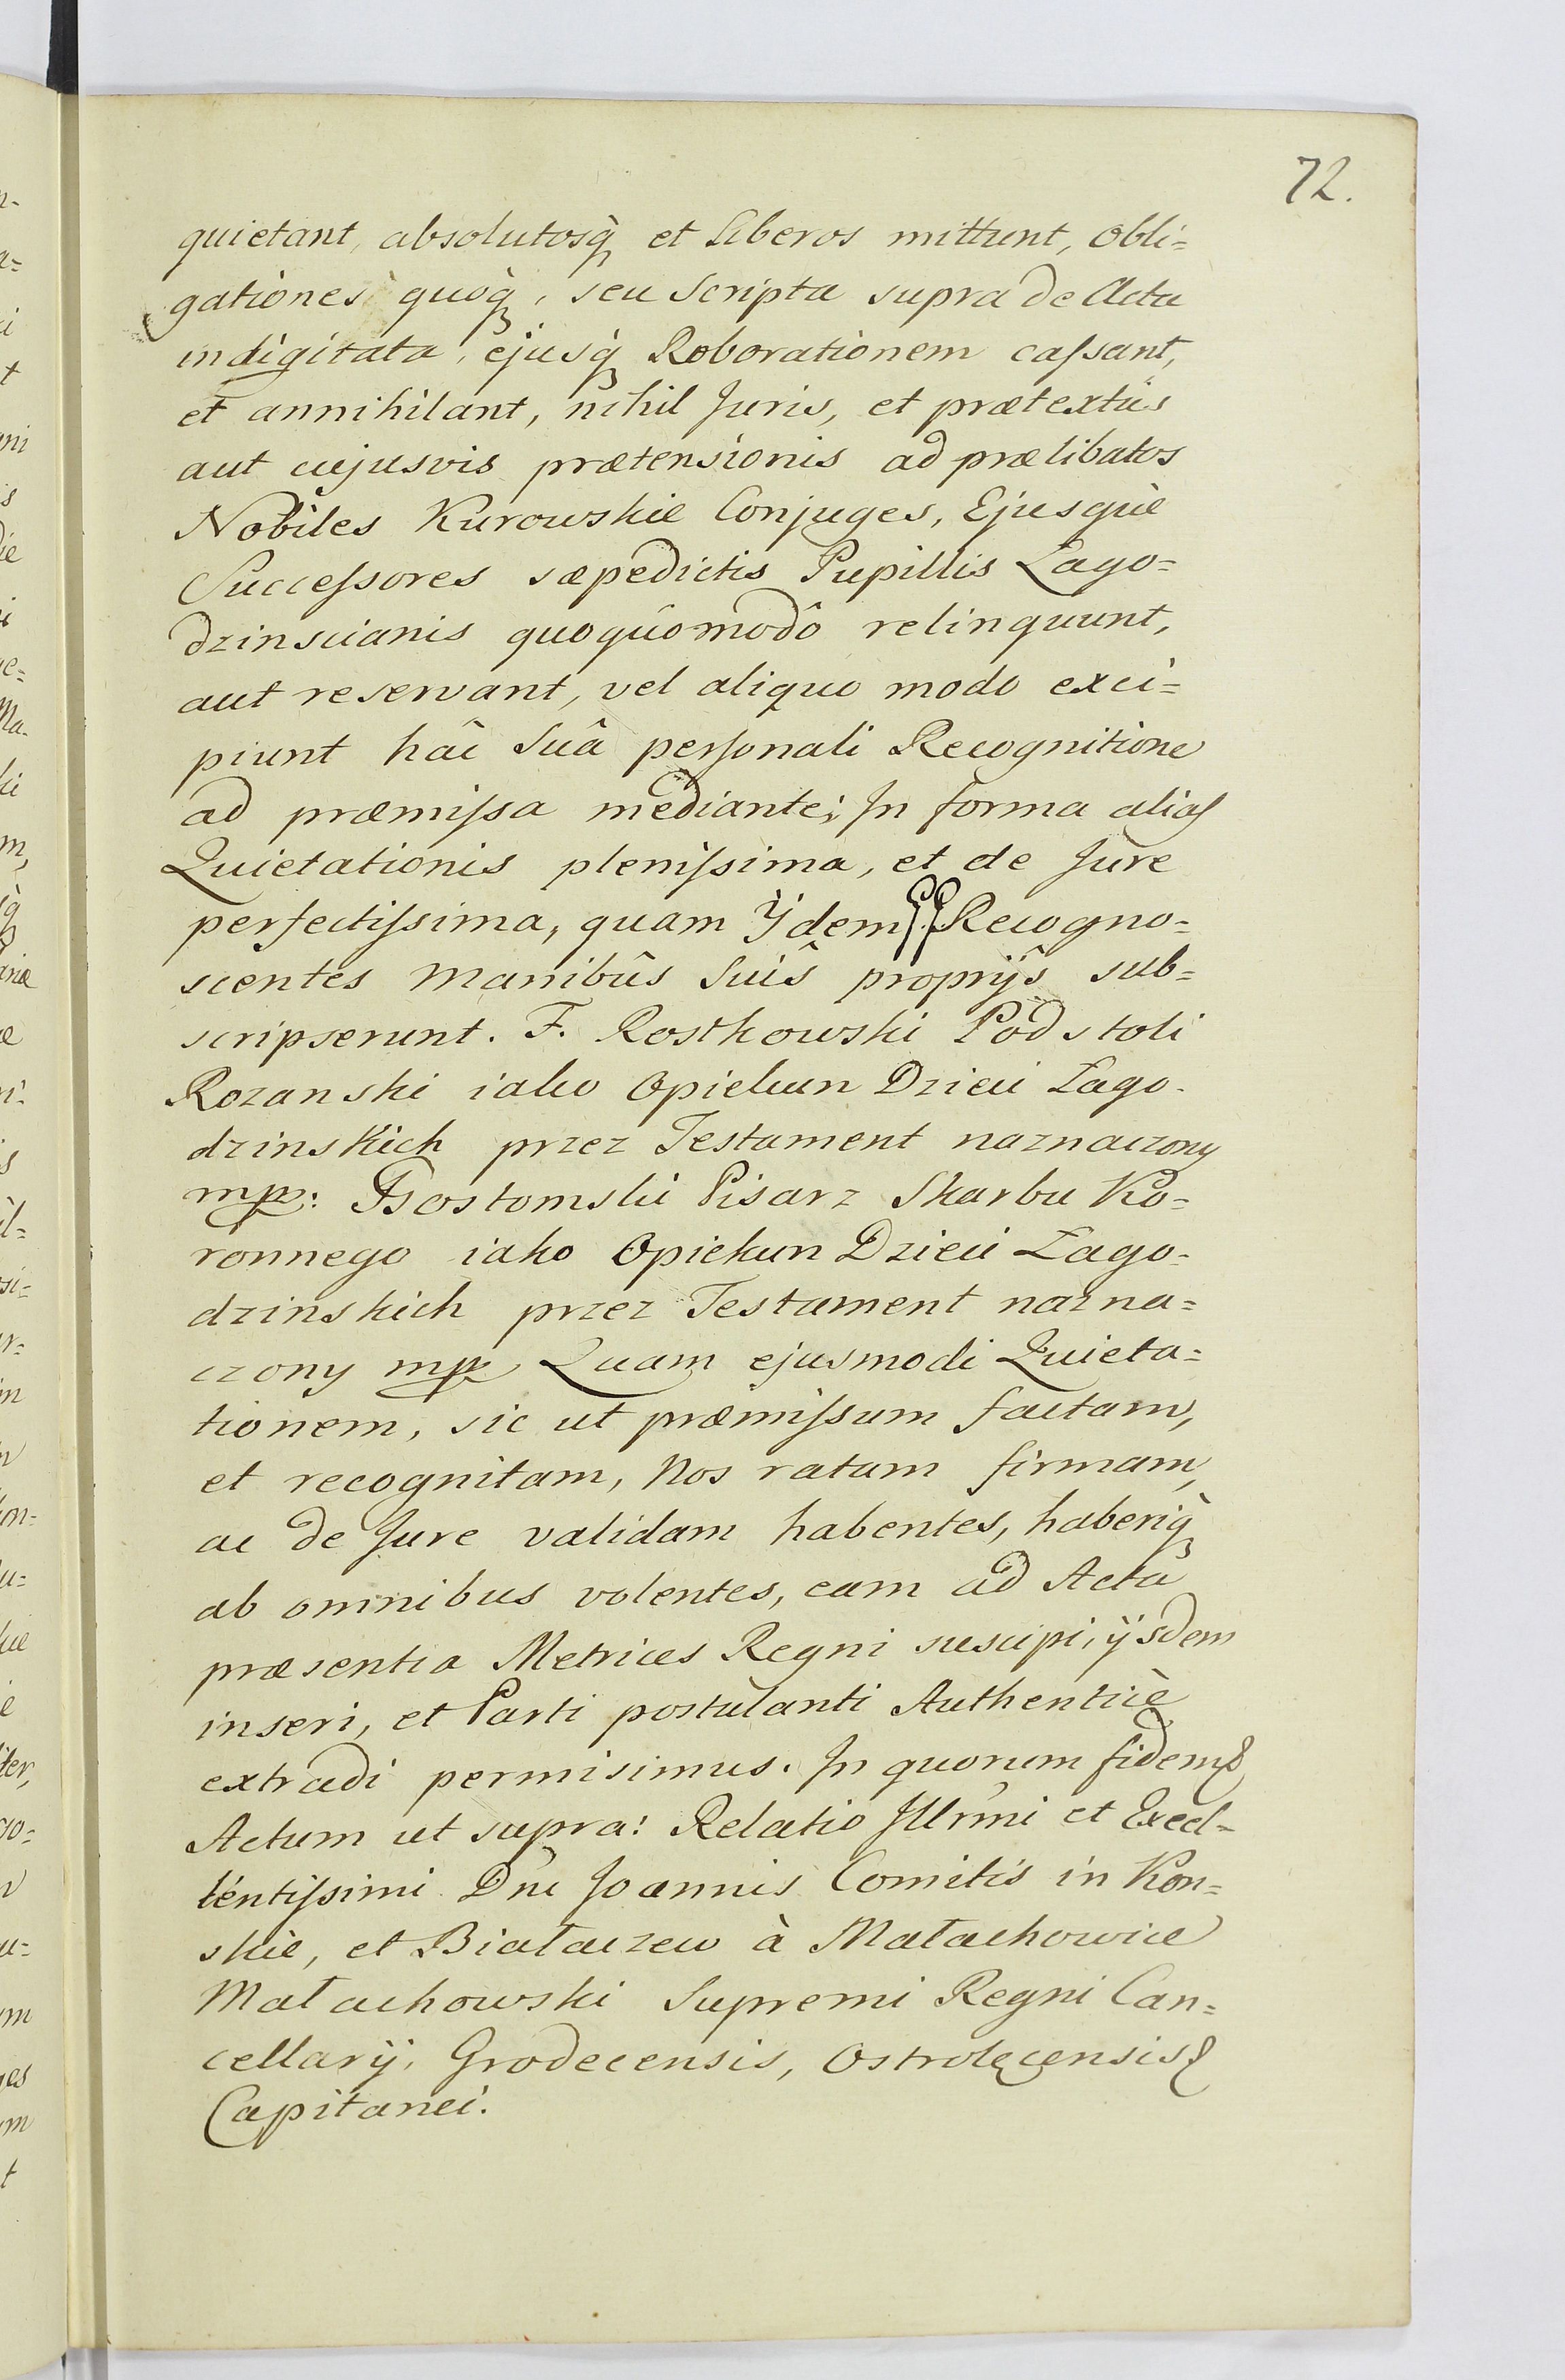 72.
quietant, absolutosq̀ et Liberos mittunt, Obli=
gationes quòq̀, seu Scripta supra de Acta
indigitata, ejusq̀ Roborationem caſsant,
et annihilant, nihil Juris, et prætextûs
aut cujusvis prætensionis ad prælibatos
Nobiles Kurowskie Conjuges, Ejusquè
Succeſsores sæpedictis Pupillis Łago=
dzinscianis quoquômodô relinquunt,
aut reservant, vel aliquo modo exci=
piunt hâc Suâ perſonali Recognitione
ad præmiſsa mediante; In forma aliaſ
Quietationis pleniſsima, et de Jure
perfectiſsima, quam Ÿdem PP. Recogno=
scentes manibûs Suis proprijs sub=
scripserunt. F. Rostkowski Podstoli
Rozanski iako Opiekun Dzieci Łago-
dzinskich przez Testament naznaczony
mp: Gostomski Pisarz Skarbu Ko=
ronnego iako Opiekun Dzieci Łago=
dzinskich przez Testament nazna=
czony mp Quam ejusmodi Quieta=
tionem, sic ut præmiſsum factam,
et recognitam, Nos ratam firmam,
ac de Jure validam habentes, haberiq̀
ab omnibus volentes, eam ad Acta
præsentia Metrices Regni suscipi, ijsdem
inseri, et Parti postulanti Authenticè
extradi permisimus. In quorum fidem
Actum ut supra: Relatio Illrmi et Excel=
lentiſsimi Dni Joannis Comitis in Kon=
skie, et Białaczew à Małachowice
Małachowski Supremi Regni Can=
cellarij, Grodecensis, Ostrołęcensis
Capitanei.